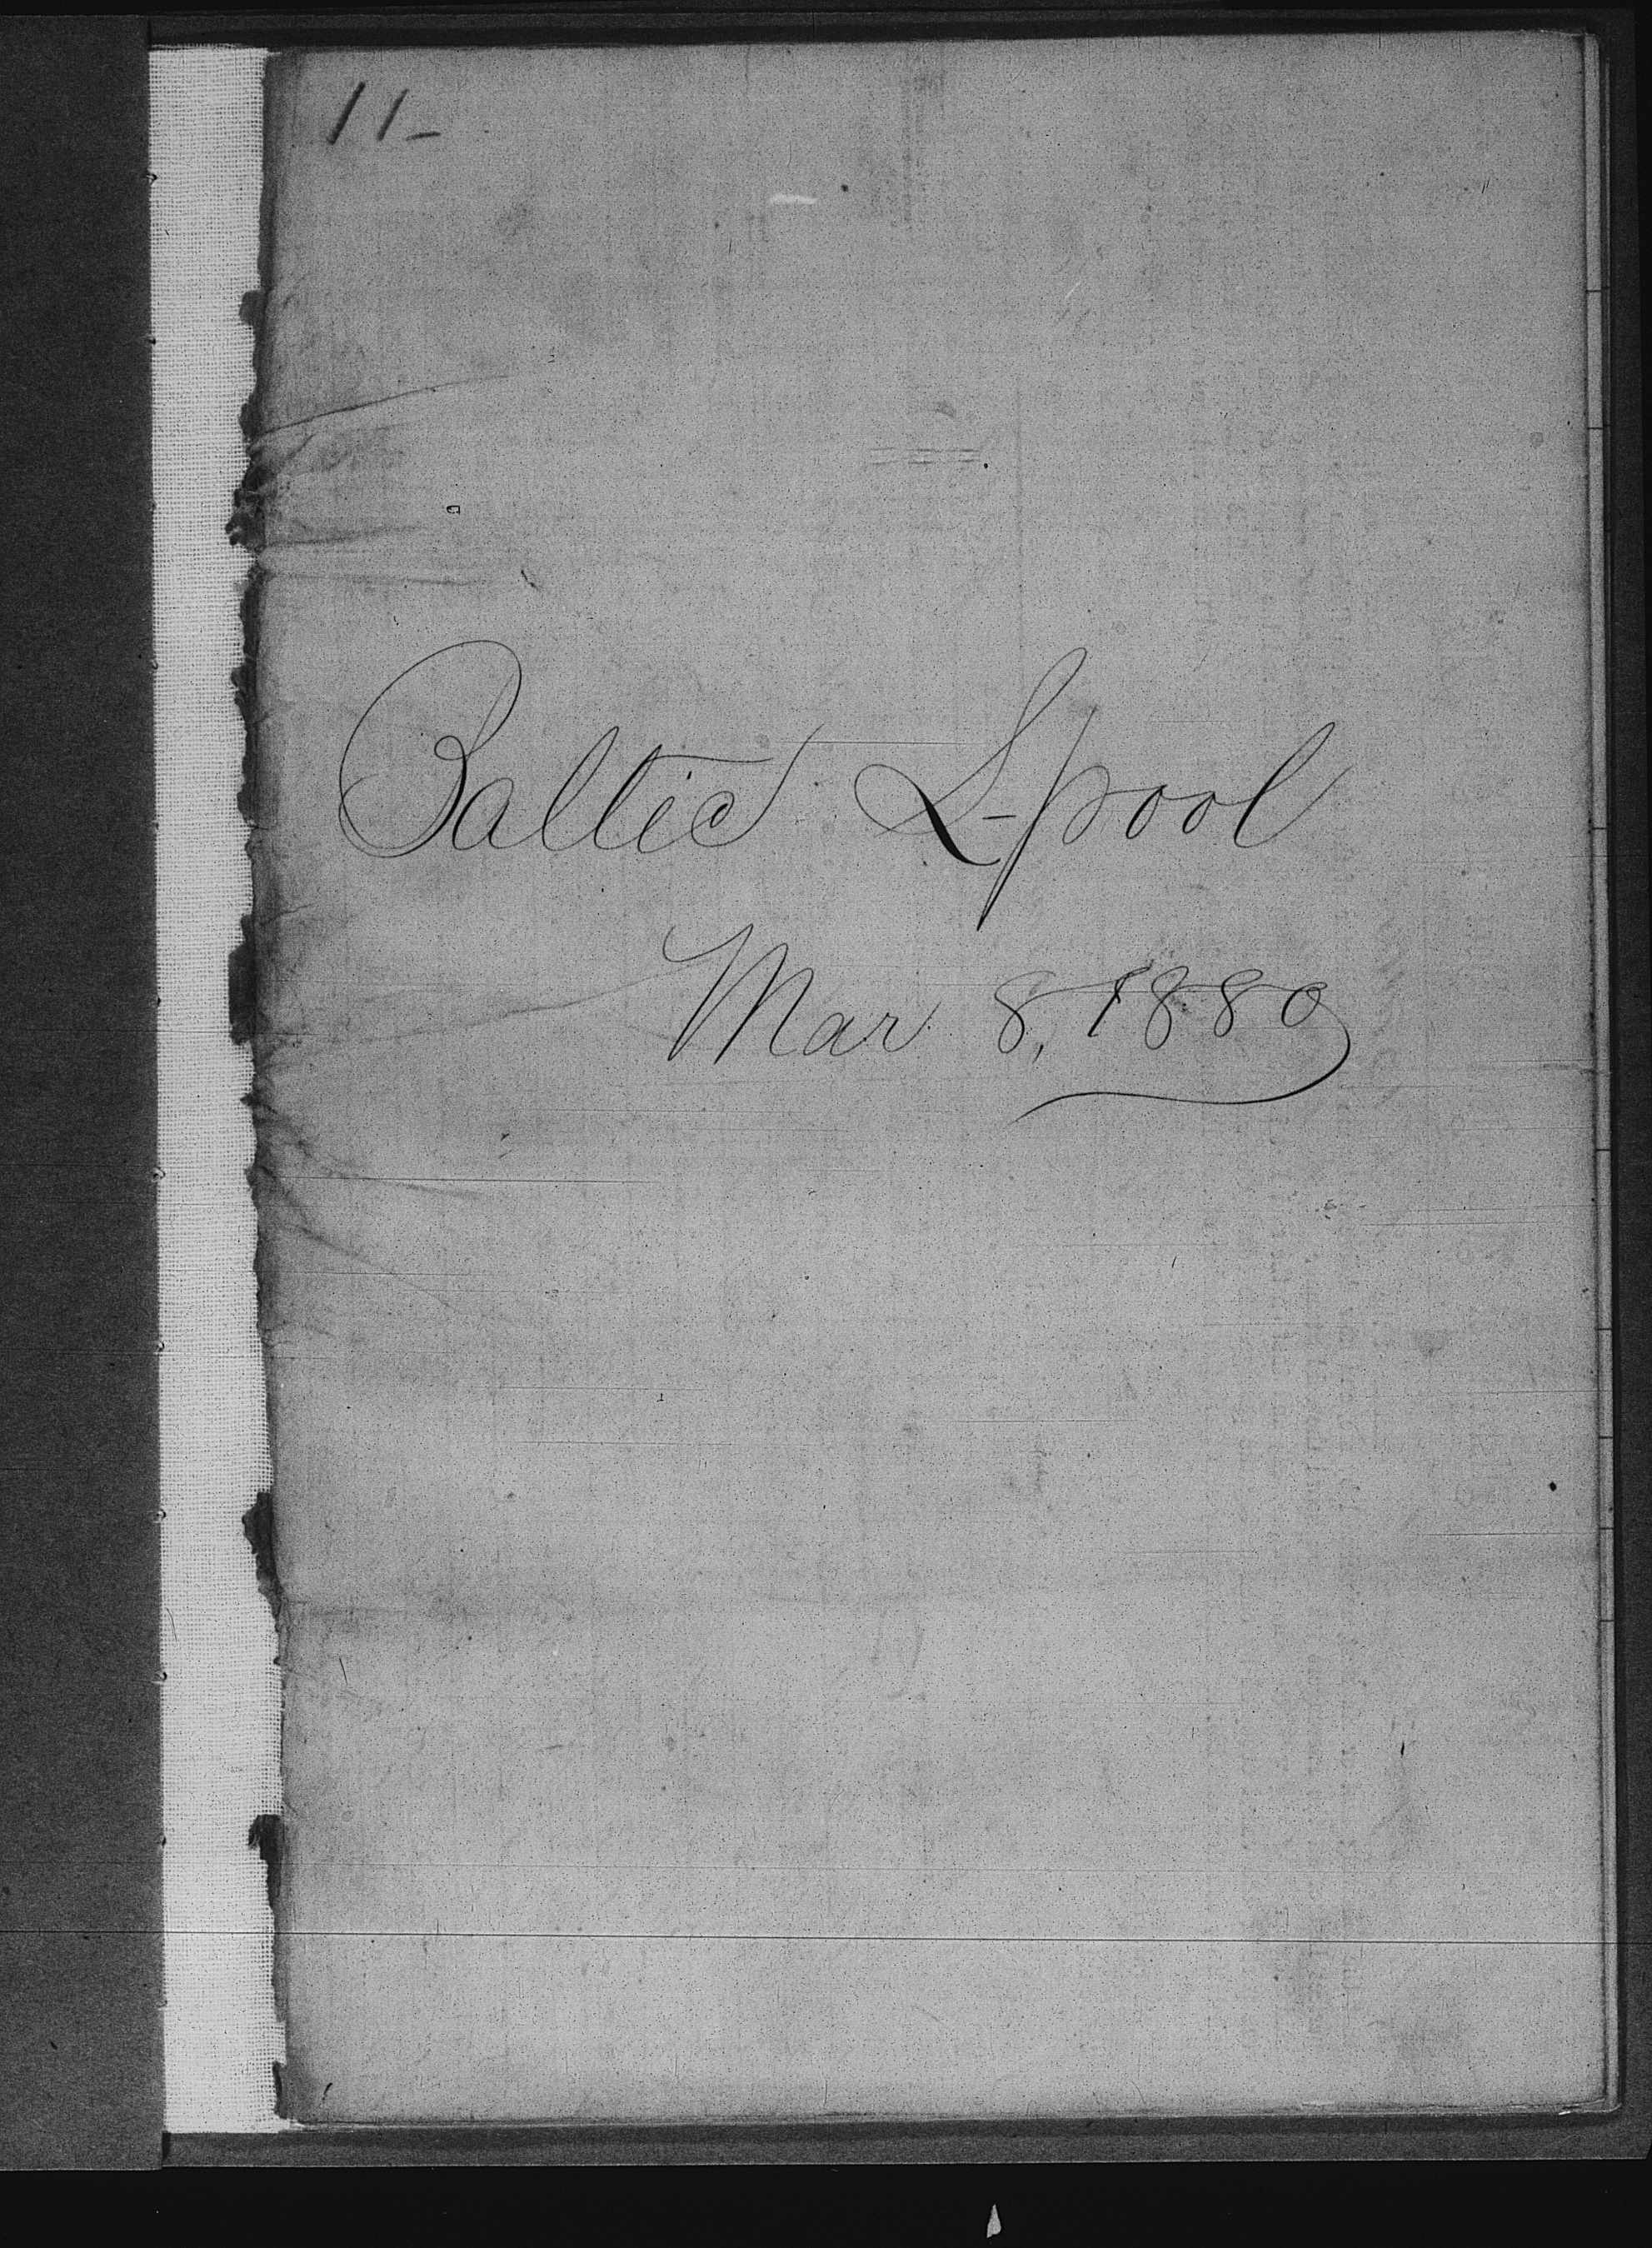 11-
Baltic L-pool
Mar 8, 1880